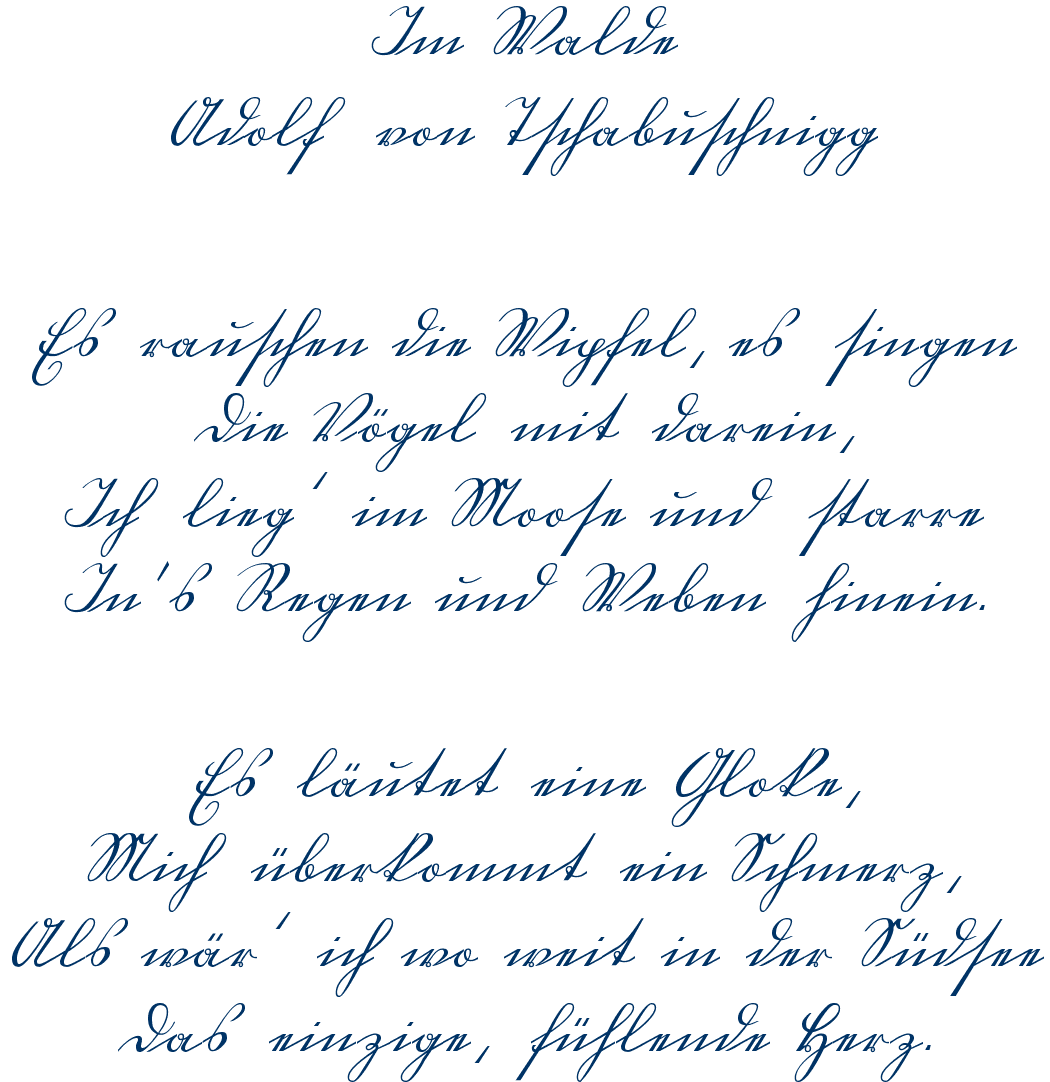 Im Walde
Adolf von Tschabuschnigg
Es rauschen die Wipfel, es singen
Die Vögel mit darein,
Ich lieg' im Moose und starre
In's Regen und Weben hinein.
Es läutet eine Gloke,
Mich überkommt ein Schmerz,
Als wär' ich wo weit in der Südsee
Das einzige, fühlende Herz.